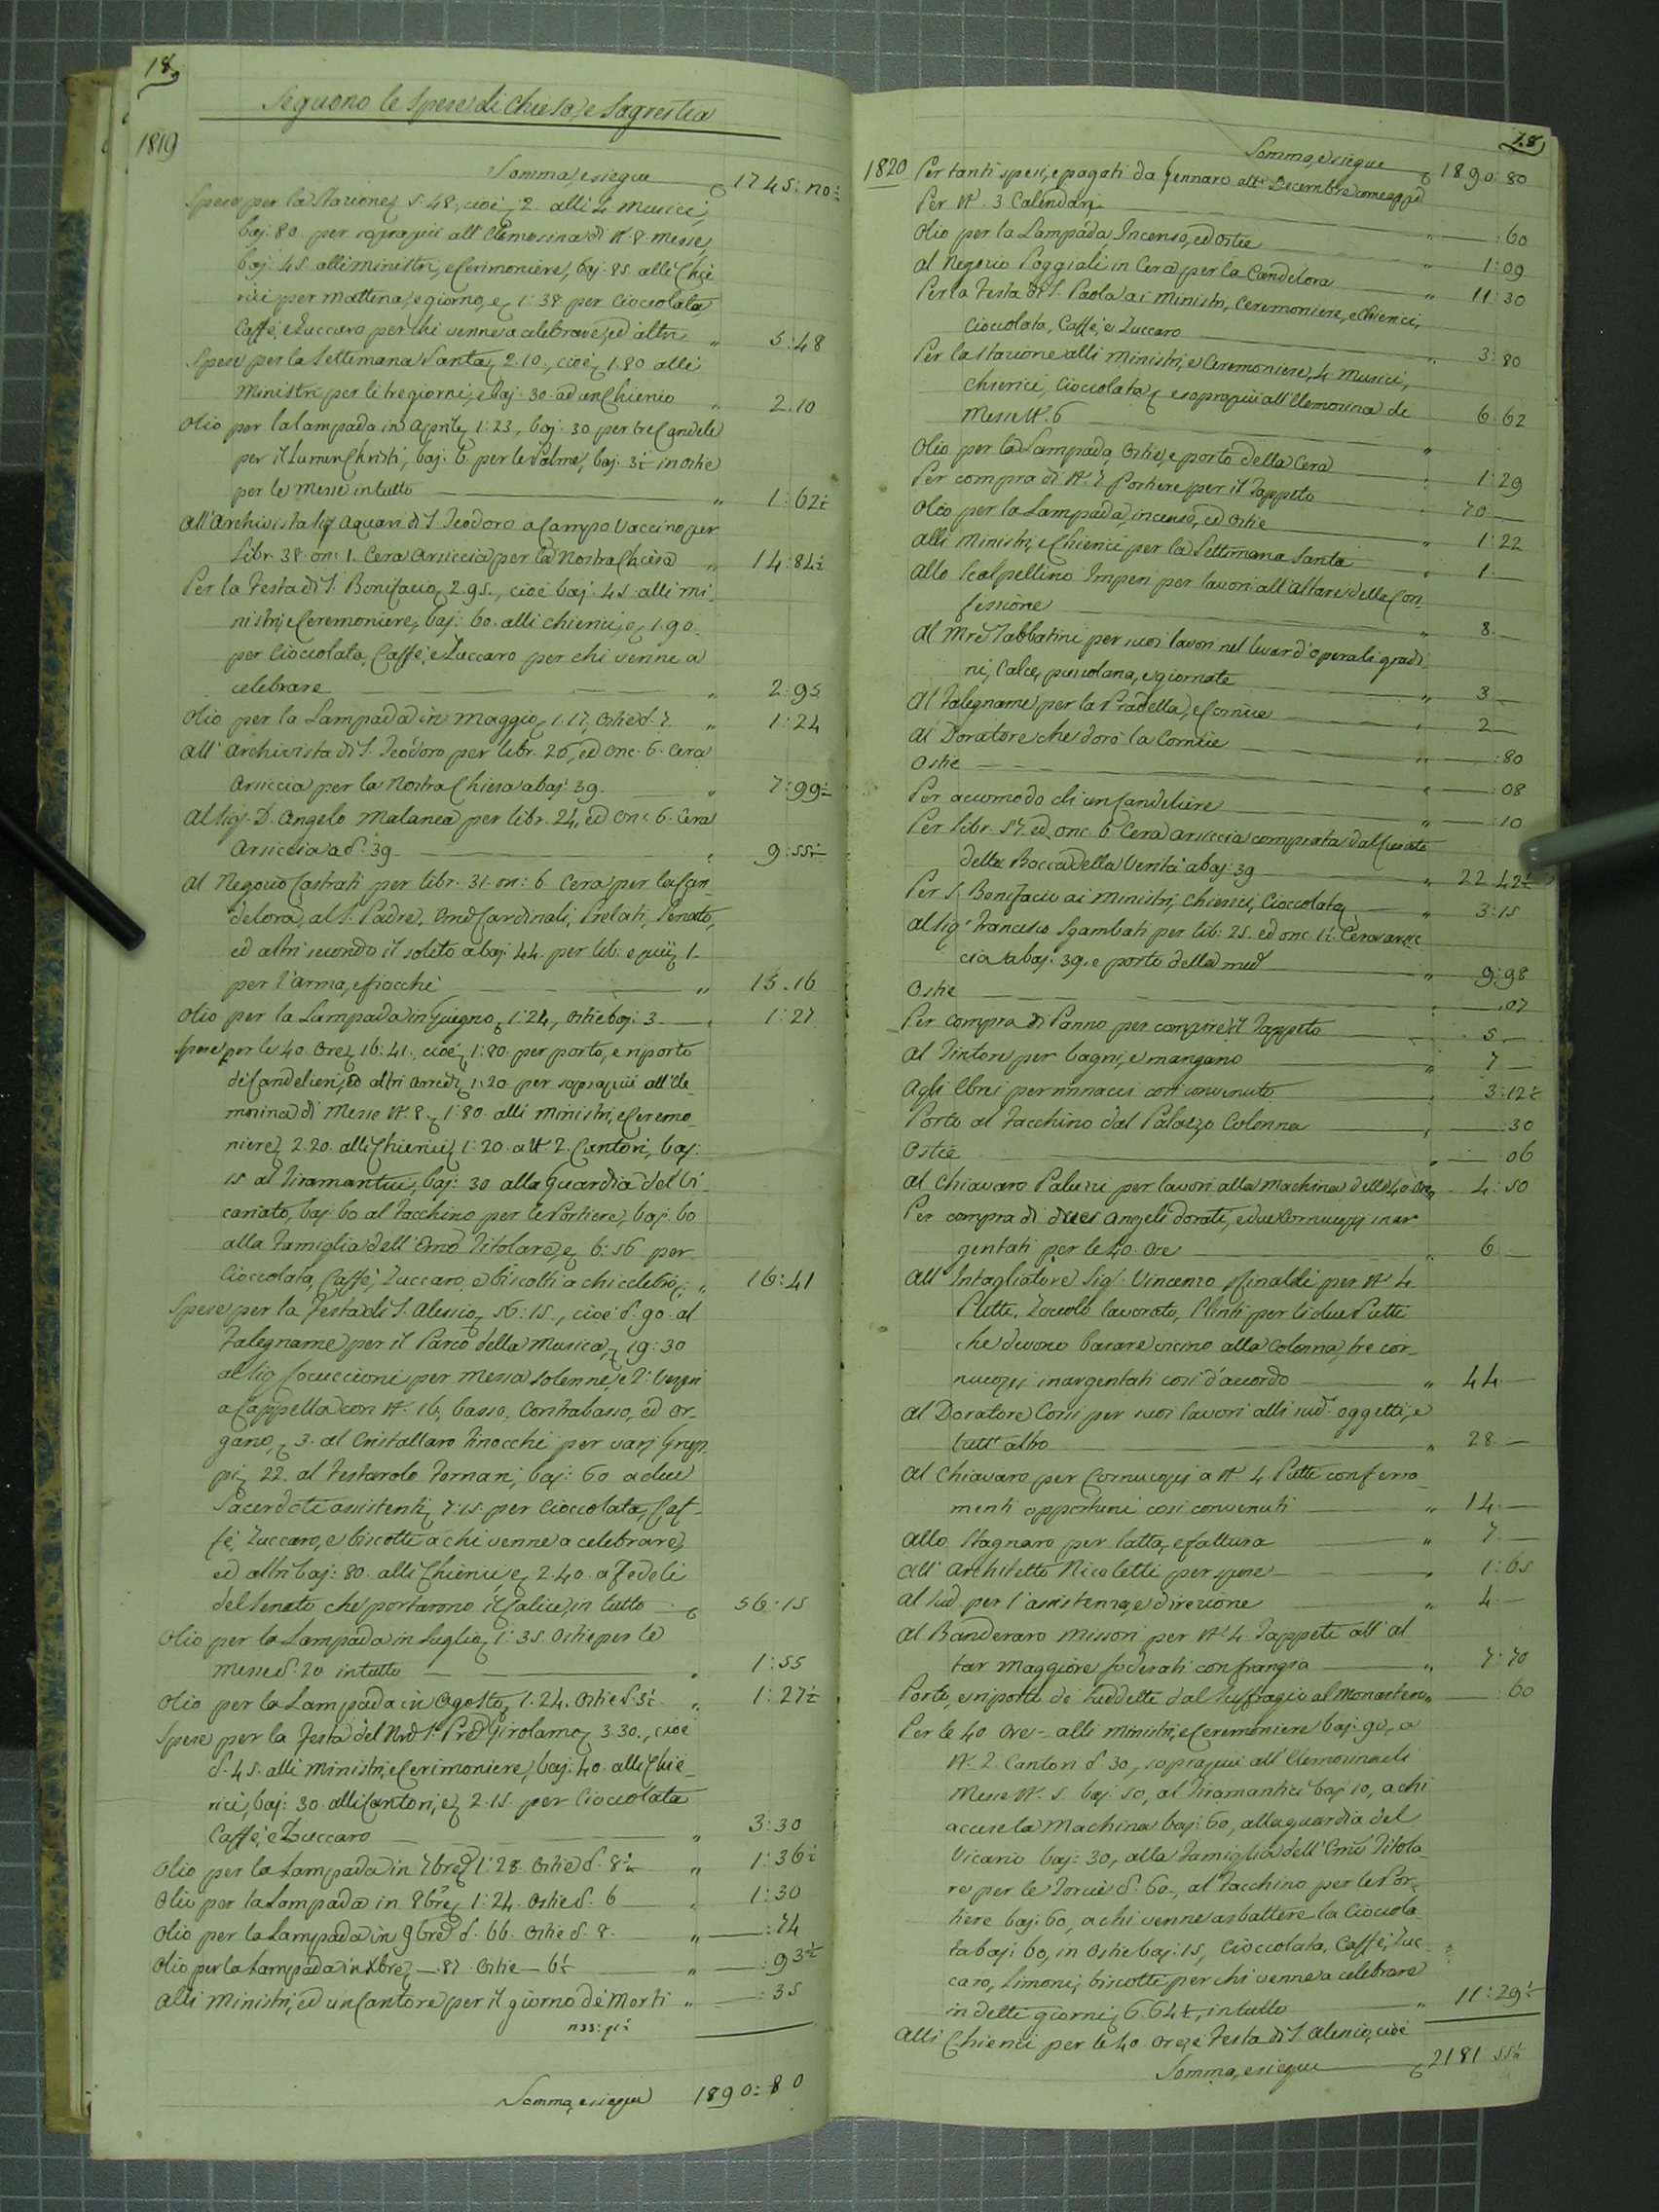 18
Seguono le Spese di Chiesa, e Sagrestia
1819
Somma, e siegue 1745:
Spese per la Stazione 5.48., cioè 2. alli 4 Musici,
baj. 80. per sopra più all'Elemosina di N. 8. Messe,
baj: 45. alli Ministri, e Cerimoniere, baj. 85. alli Chie
rici per mattina, e giorno, e 1:38 per Cioccolata
Caffè, e Zuccaro per chi venne a celebrare, ed altri " 5:48
Spese per la Settimana Santa 2.10., cioè 1.80 alli
Ministri per li tre giorni, e baj: 30. ad un Chierico " 2.10
Olio per la lampada in Aprile 1:23, baj: 30 per tre Candele
per il Lumen Christi, baj: 6. per le Palme, baj. 3½ in Ostie
per le Messe in tutto " 1:62½
All'Archivista Sig Aquari di S. Teodoro a Campo Vaccino per
Libr. 38. on: 1. Cera Arsiccia per la Nostra Chiesa " 14:84½
Per la Festa di S. Bonifacio 2.95., cioè baj. 45 alli Mi-
nistri, e Ceremoniere, baj: 60. alli Chierici, e 1.90.
per Cioccolata, Caffè, e Zuccaro per chi venne a
celebrare " 2:95
Olio per la Lampada in Maggio 1.17, Ostie d. 7. " 1:24
All'Archivista di S. Teodoro per libr. 20, ed onc. 6. Cera
Arsiccia per la Nostra Chiesa a baj: 39. " 7:99½
Al Sig. D. Angelo Malanea per libr. 24, ed onc. 6. Cera
Arsiccia a d. 39 " 9:55½
Al Negozio Castrati per libr. 31. on: 6 Cera per la Can-
delora, al S. Padre, Emi Cardinali, Prelati, Senato,
ed altri secondo il solito a baj: 44. per lib: e più 1.
per l'arma, e fiocchi " 15.16
Olio per la Lampada in Giugno 1:24, Ostie baj: 3 " 1:27
Spese per le 40. Ore 16:41., cioè 1:80. per porto, e riporto
di Candelieri, ed altri arredi 1:20. per sopra più all'Ele
mosina di Messe N. 8. 1:80. alli Ministri, e Ceremo-
niere 2.20. alli Chierici 1:20. a N. 2. Cantori, baj:
15 al Tiramantici, baj: 30 alla Guardia del Vi
cariato, baj: 60 al Facchino per le Portiere, baj. 60
alla Famiglia dell'Emo Titolare, e 6:56 per
Cioccolata, Caffè, Zuccaro, e biscotti a chi celebrò " 16:41
Spese per la Festa di S. Alessio 56:15., cioè d. 90. al
Falegname per il Parco della Musica, 19:30
al Sig Cocuccioni per Messa solenne, e 2i Vesperi
a Cappella con N. 16, basso, Contrabasso, ed or-
gano, 3. al Cristallaro Finocchi per varj Grup-
pi 22. al Festarolo Fornari, baj: 60 a due
Sacerdoti assistenti 7:15. per Cioccolata, Caf-
fè, Zuccaro, e biscotti a chi venne a celebrare,
ed altri baj: 80. alli Chierici, e 2.40. a Fedeli
del Senato che portarono il Calice, in tutto 56:15
Olio per la Lampada in Luglio 1:35. Ostie per le
Messe d. 20 in tutto " 1:55
Olio per la Lampada in Agosto 1.24. Ostie d. 3½ " 1:27½
Spese per la Festa del Nro S. Pre Girolamo 3.30., cioè
d. 45. alli Ministri, e Cerimoniere, baj: 40. alli Chie-
rici, baj: 30. alli Cantori, e 2.15. per Cioccolata
Caffè, e Zuccaro " 3:30
Olio per la Lampada in 7bre 1:28. Ostie d. 8½ " 1:36½
Olio per la Lampada in 8bre 1:24. Ostie d. 6 " 1:30
Olio per la Lampada in 9bre d. 66. Ostie d. 8. " :74
Olio per la Lampada in Xbre .87. Ostie 6½ " :93½
Alli Ministri, ed un Cantore per il giorno de Morti " :35
Somma, e siegue 1890:80
18
Somma, e siegue 1890:80
1820 Per tanti spesi, e pagati da Gennaro alli Decembre come app
Per N. 3 Calendarj " :60
Olio per la Lampada, Incenso, ed Ostie " 1:09
Al Negozio Poggiali in Cera per la Candelora " 11:30
Per la Festa di S. Paola ai Ministri, Ceremoniere, e Chierici,
Cioccolata, Caffè, e Zuccaro " 3:80
Per la Stazione alli Ministri, e Ceremoniere, 4. Musici,
Chierici, Cioccolata, e sopra più all'Elemosina di
Messe N. 6 " 6:62
Olio per la Lampada, Ostie, e porto della Cera " 1:29
Per compra di N. 7. Portiere per il Tappeto " 70.
Olio per la Lampada, incenso, ed Ostie " 1:22
Alli Ministri, e Chierici per la Settimana Santa " 1.
Allo Scalpellino Imperi per lavori all'Altare della Con-
fessione " 8.
Al Mro Sabbatini per suoi lavori nel levar d'opera li gradi
ni, Calce, puzzolana, e giornate " 3.
Al Falegname per la Pradella, e Cornice " 2
Al Doratore che dorò la Cornice " :80
Ostie " :08
Per accomodo di un Candeliere " :10
Per libr. 57. ed onc. 6 Cera arsiccia comprata dal Curato
della Bocca della Verità a baj: 39 " 22.42½
Per S. Bonifacio ai Ministri, Chierici, Cioccolata " 3:15
Al Sig. Francesco Sgambati per lib: 25. ed onc. Cera arsic
cia a baj. 39. e porto della med " 9:98
Ostie " :07
Per compra di Panno per compire il Tappeto " 5.
Al Tintore per bagni, e mangano " 7
Agli Ebrei per così convenuto " 3:12½
Porto al Facchino dal Palazzo Colonna " :30
Ostie " :06
Al Chiavaro Paluzzi per lavori alla Machina delle 40 Ore " 4:50
Per compra di dieci Angeli dorati, e due Cornucopj inar
gentati per le 40. Ore " 6.
All'Intagliatore Sig. Vincenzo Rinaldi per N. 4
Putti, Zoccolo lavorato, Plinti per li due Putti
che devono basare vicino alla Colonna, tre cor-
nucopj inargentati così d'accordo " 44
Al Doratore Corsi per suoi lavori alli sud. oggetti, e
tutt'altro " 28.
Al Chiavaro per Cornucopj a N. 4 Putti con ferra
menti opportuni così convenuti " 14.
Allo Stagnaro per latta, e fattura " 7.
All'Architetto Nicoletti per spese " 1:65
Al Sud. per l'assistenza, e direzione " 4.
Al Banderaro Missori per N. 4. Tappeti all'Al
tar Maggiore foderati con frangia " 7:70
Porto, e riporto de Suddetti dal Suffragio al Monastero " :60
Per le 40. Ore alli Ministri, e Ceremoniere baj: 90, a
N. 2. Cantori d. 30, sopra più all'Elemosina di
Messe N. 5. baj. 50, al Tiramantici baj 10, a chi
accese la Machina baj: 60, alla guardia del
Vicario baj: 30, alla Famiglia dell'Emo Titola-
re per le Torcie d. 60., al Facchino per le Por-
tiere baj: 60, a chi venne a sbattere la Cioccola-
ta baj: 60, in Ostie baj: 15, Cioccolata, Caffè, Zuc-
caro, Limoni, biscotti per chi venne a celebrare
in detti giorni 6.64½, in tutto " 11:29½
Alli Chierici per le 40. Ore, e Festa di S. Alessio, cioè
Somma, e siegue 2181 55½